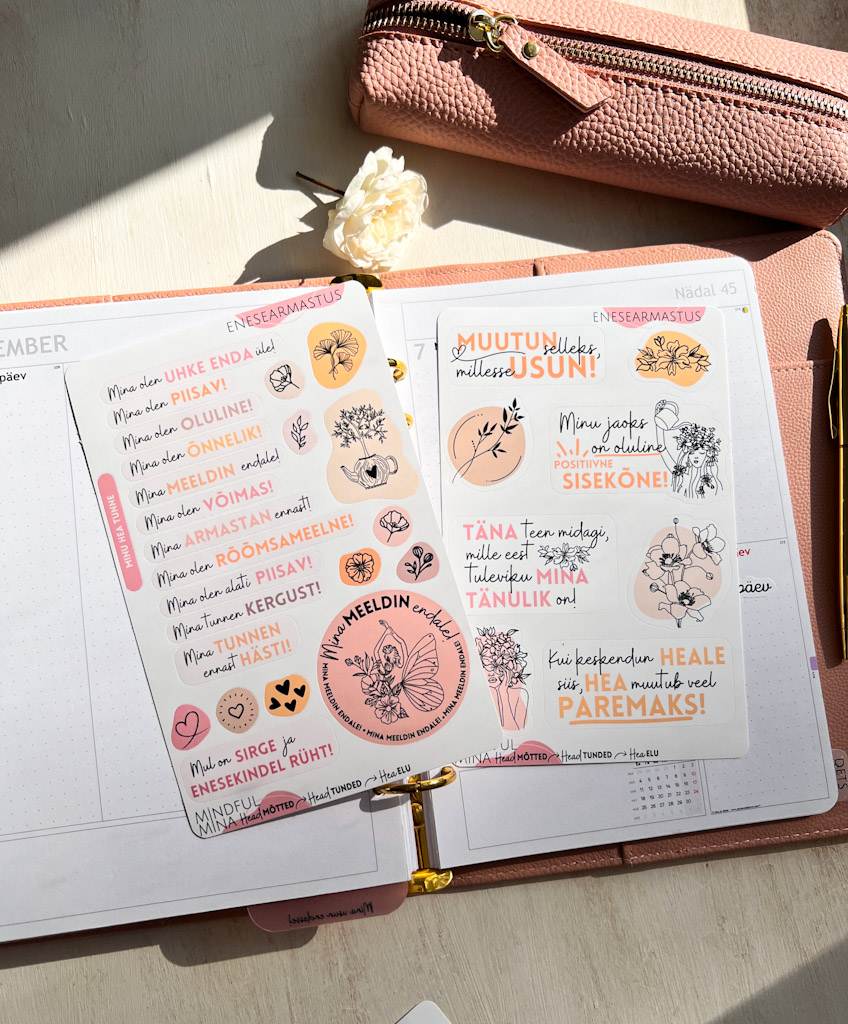 EMBER
päev
ENESEARMASTUS
Mina olen UHKE ENDA üle!
Mina olen PIISAV!
Mina olen OLULINE!
Mina olen ÕNNELIK!
Mina MEELDIN endale!
Mina olen VÕIMAS!
Mina ARMASTAN ennast!
Mina olen RÕÕMSAMEELNE!
Mina olen alati PIISAV!
Mina tunnen KERGUST!
Mina TUNNEN
ennast HÄSTI!
MINU HEA TUNNE
Mina MEELDIN endale!
MINA MEELDIN ENDALE! • MINA MEELDIN ENDALE! • MINA MEELDIN ENDALE!
Mul on SIRGE ja
ENESEKINDEL RÜHT!
MINDFUL
MINA Head MÕTTED → Head TUNDED → Hea ELU
Nädal 45
7
ENESEARMASTUS
MUUTUN selleks,
millesse USUN!
Minu jaoks
on oluline
POSITIIVNE
SISEKÕNE!
TÄNA teen midagi,
mille eest
tuleviku MINA
TÄNULIK on!
Kui keskendun HEALE
siis, HEA muutub veel
PAREMAKS!
MINDFUL
MINA Head MÕTTED → Head TUNDED → Hea ELU
päev
Minu usun endasse!